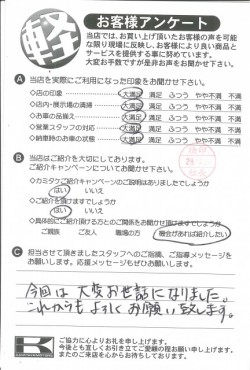 軽
お客様アンケート
当店では、お買い上げ頂いたお客様の声を可能
な限り現場に反映し、お客様により良い商品と
サービスを提供する事に努めています。
大変お手数ですが是非お声をお聞かせ下さい。
A 当店を実際にご利用になった印象をお聞かせ下さい。
◇店の印象 大満足 満足 ふつう やや不満 不満
◇店内・展示場の清掃 大満足 満足 ふつう やや不満 不満
◇お車の品揃え 大満足 満足 ふつう やや不満 不満
◇営業スタッフの対応 大満足 満足 ふつう やや不満 不満
◇納車時のお車の状態 大満足 満足 ふつう やや不満 不満
B 当店はご紹介を大切にしております。
ご紹介キャンペーンについてお聞かせ下さい。
◇カミタケご紹介キャンペーンのご説明はありましたでしょうか
はい いいえ
◇ご紹介を頂けますでしょうか
はい いいえ
◇具体的にご紹介頂ける方とのご関係をお聞かせ頂けますでしょうか
ご親族 ご友人 職場の方 機会があれば紹介したい
C 担当させて頂きましたスタッフへのご指摘、ご指導メッセージを
お願いします。応援メッセージもぜひお願いします。
今回は大変お世話になりました。
これからもよろしくお願い致します。
K
ご協力に心よりお礼を申し上げます。
今後とも宜しくお引き立てご愛顧の程お願い申し上げます。
またのご来店を心からお待ちしております。